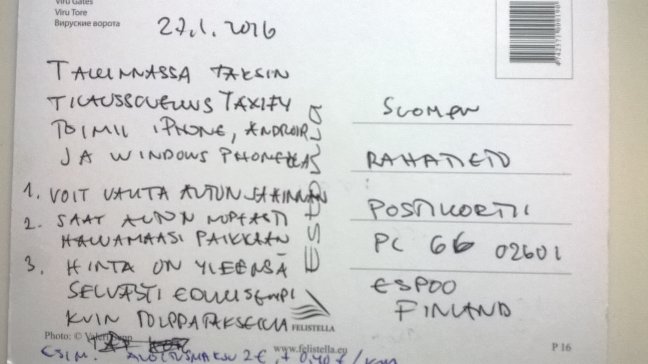 Viru Gates
Viru Tore
Вируские ворота
27.1.2016
TALLINNASSA TAKSIN
TILAUSSOVELLUS TAXIFY
TOIMII iPHONE, ANDROID
JA WINDOWS PHONELLA
1. VOIT VALITA AUTON JA HINNAN
2. SAAT AUTON NOPEASTI
HALUAMAASI PAIKKAAN
3. HINTA ON YLEENSÄ
SELVÄSTI EDULLISEMPI
KUIN TOLPPATAKSEILLA
ESIM. ALOITUSMAKSU 2€, + 0,40 €/km
SUOMEN
RAHATIETO
POSTIKORTTI
PC 66 02601
ESPOO
FINLAND
FELISTELLA
Photo: ©
www.felistella.eu
P 16